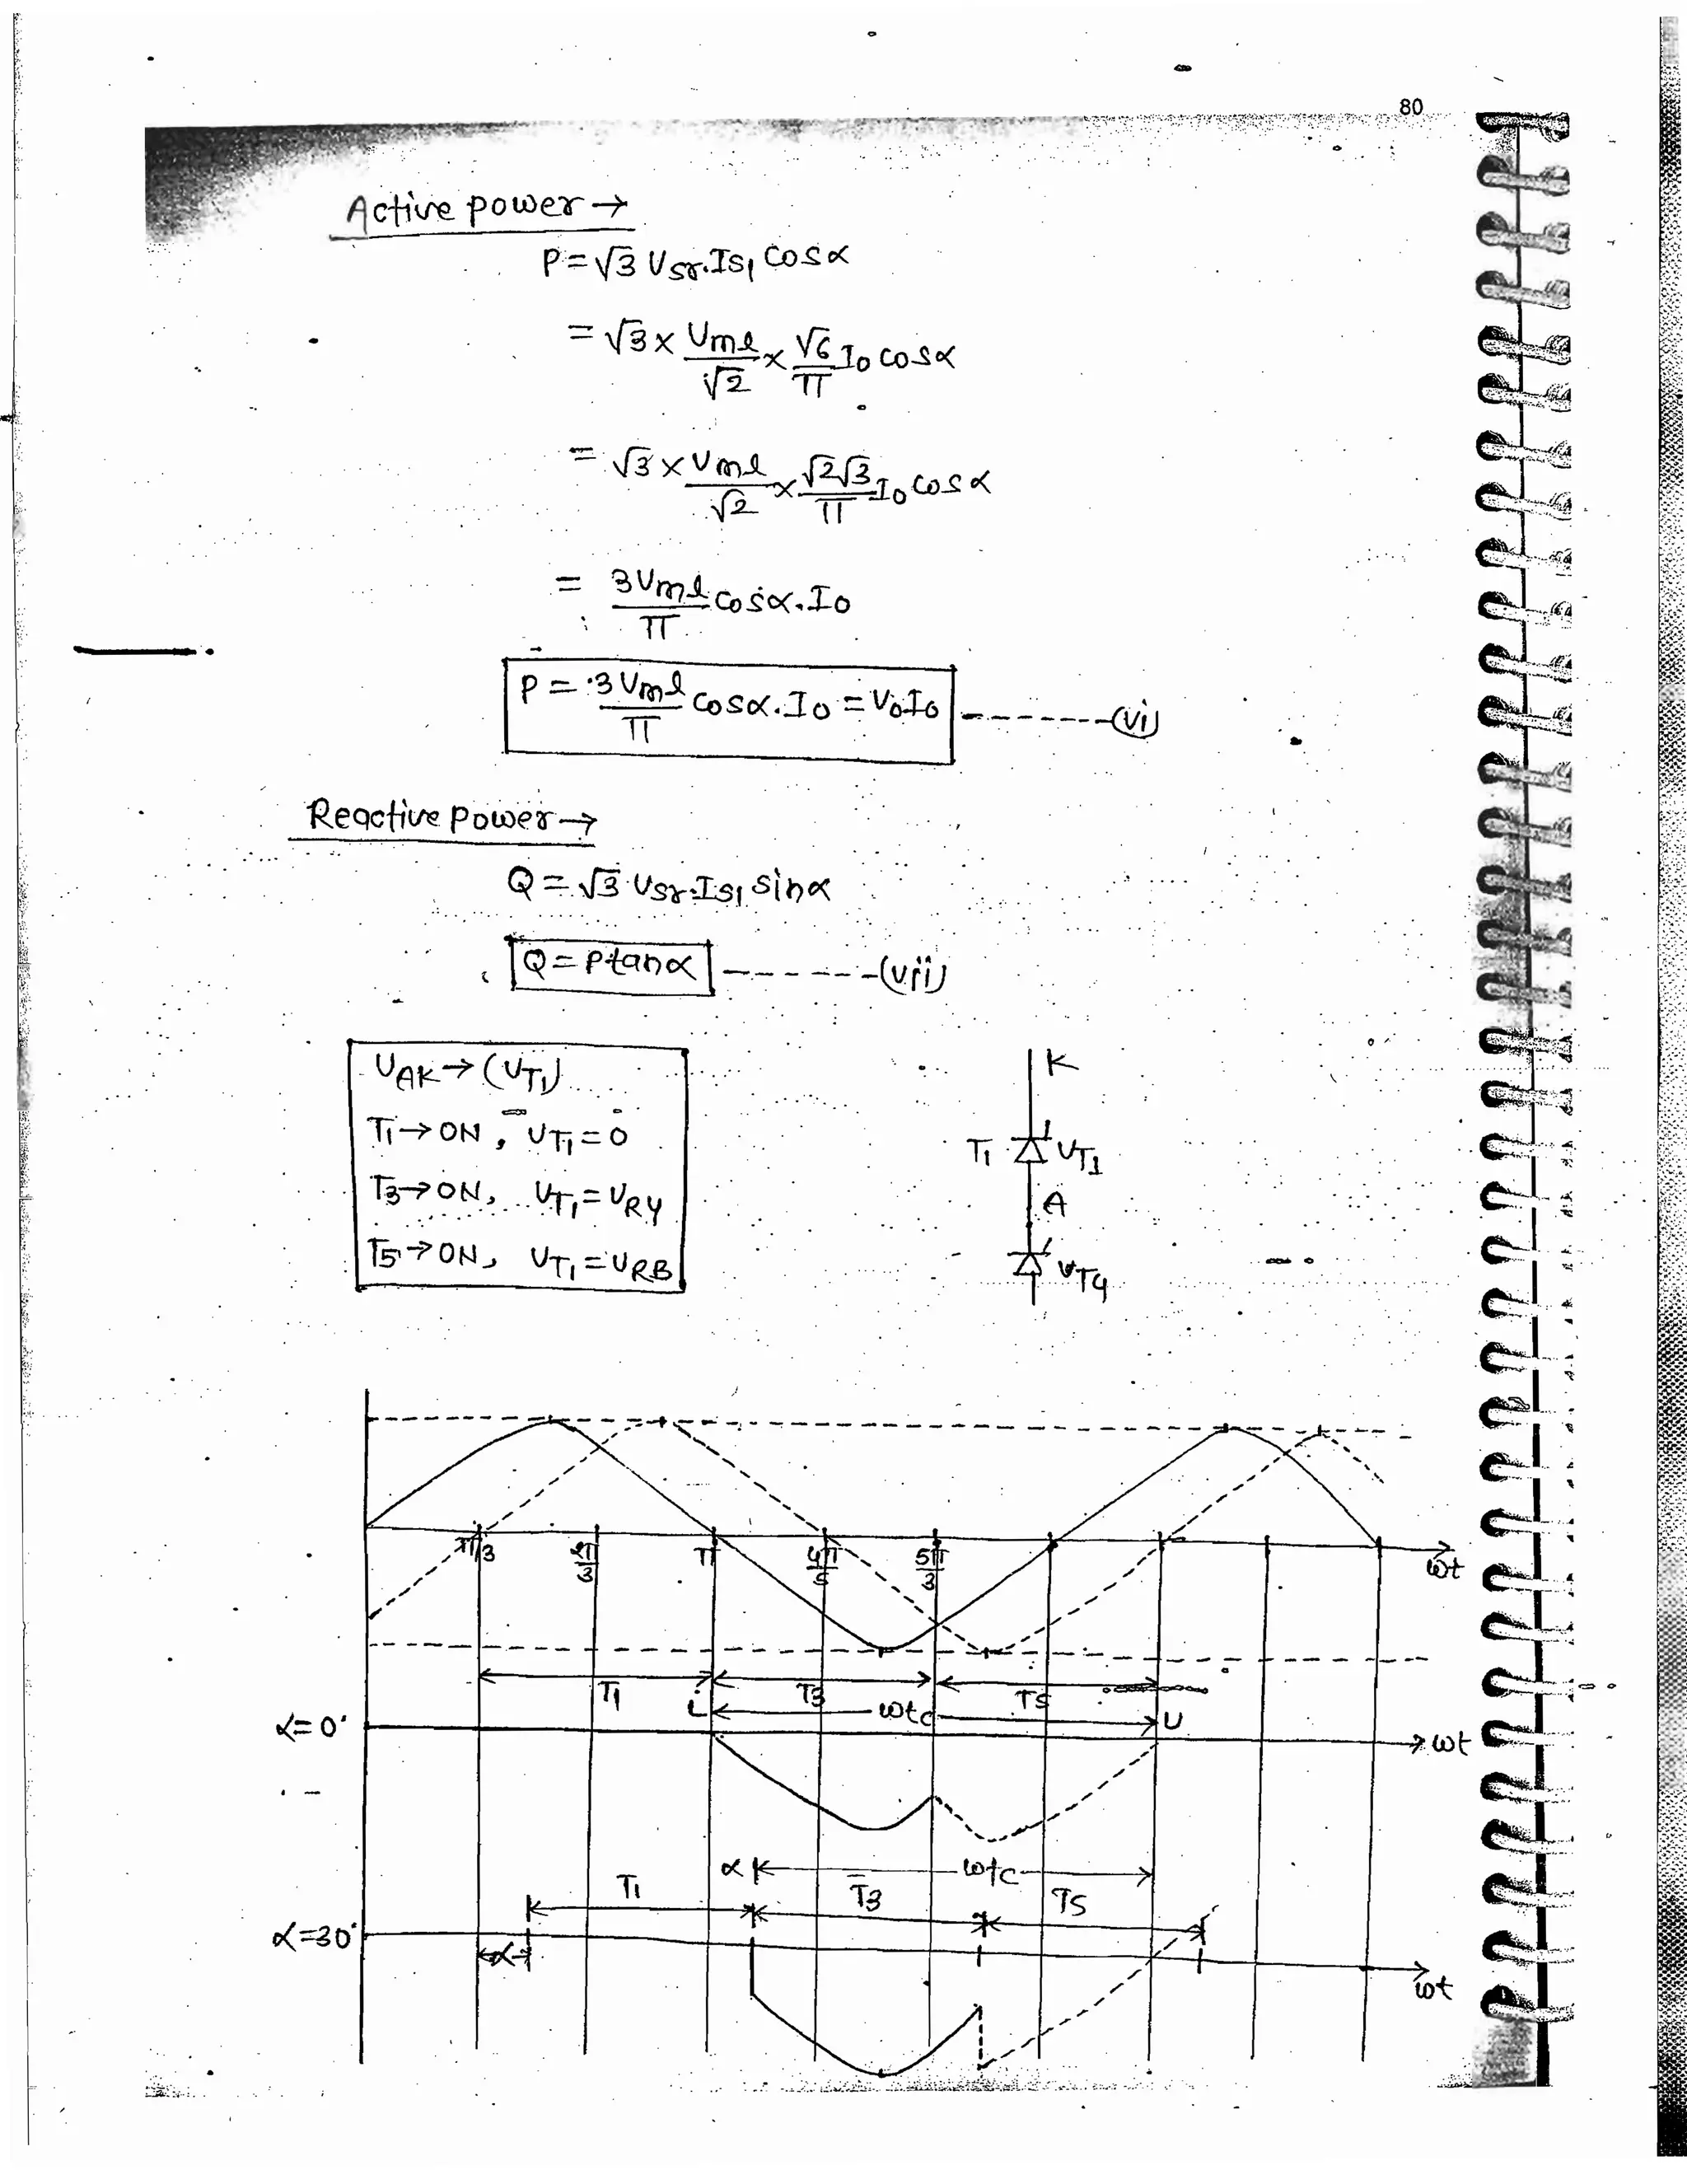 80
Active power →
P = √3 Vsr. Is1 cosα
= √3 × Vml/√2 × √6/π I0 cosα
= √3 × Vml/√2 × √2√3/π I0 cosα
= 3Vml/π cosα. I0
P = 3Vml/π cosα. I0 = V0I0 -------(vi)
Reactive power →
Q = √3 Vsr. Is1 sinα
Q = P tanα ------(vii)
VAK → (VT1)
T1 → ON, VT1 = 0
T3 → ON, VT1 = VRY
T5 → ON, VT1 = VRB
K
T1 VT1
A
VT4
π/3 2π/3 π 4π/5 5π/3 ωt
T1 T3 T5
ωtc
α = 0° ωt
α ωtc
T1 T3 T5
α = 30°
α
ωt